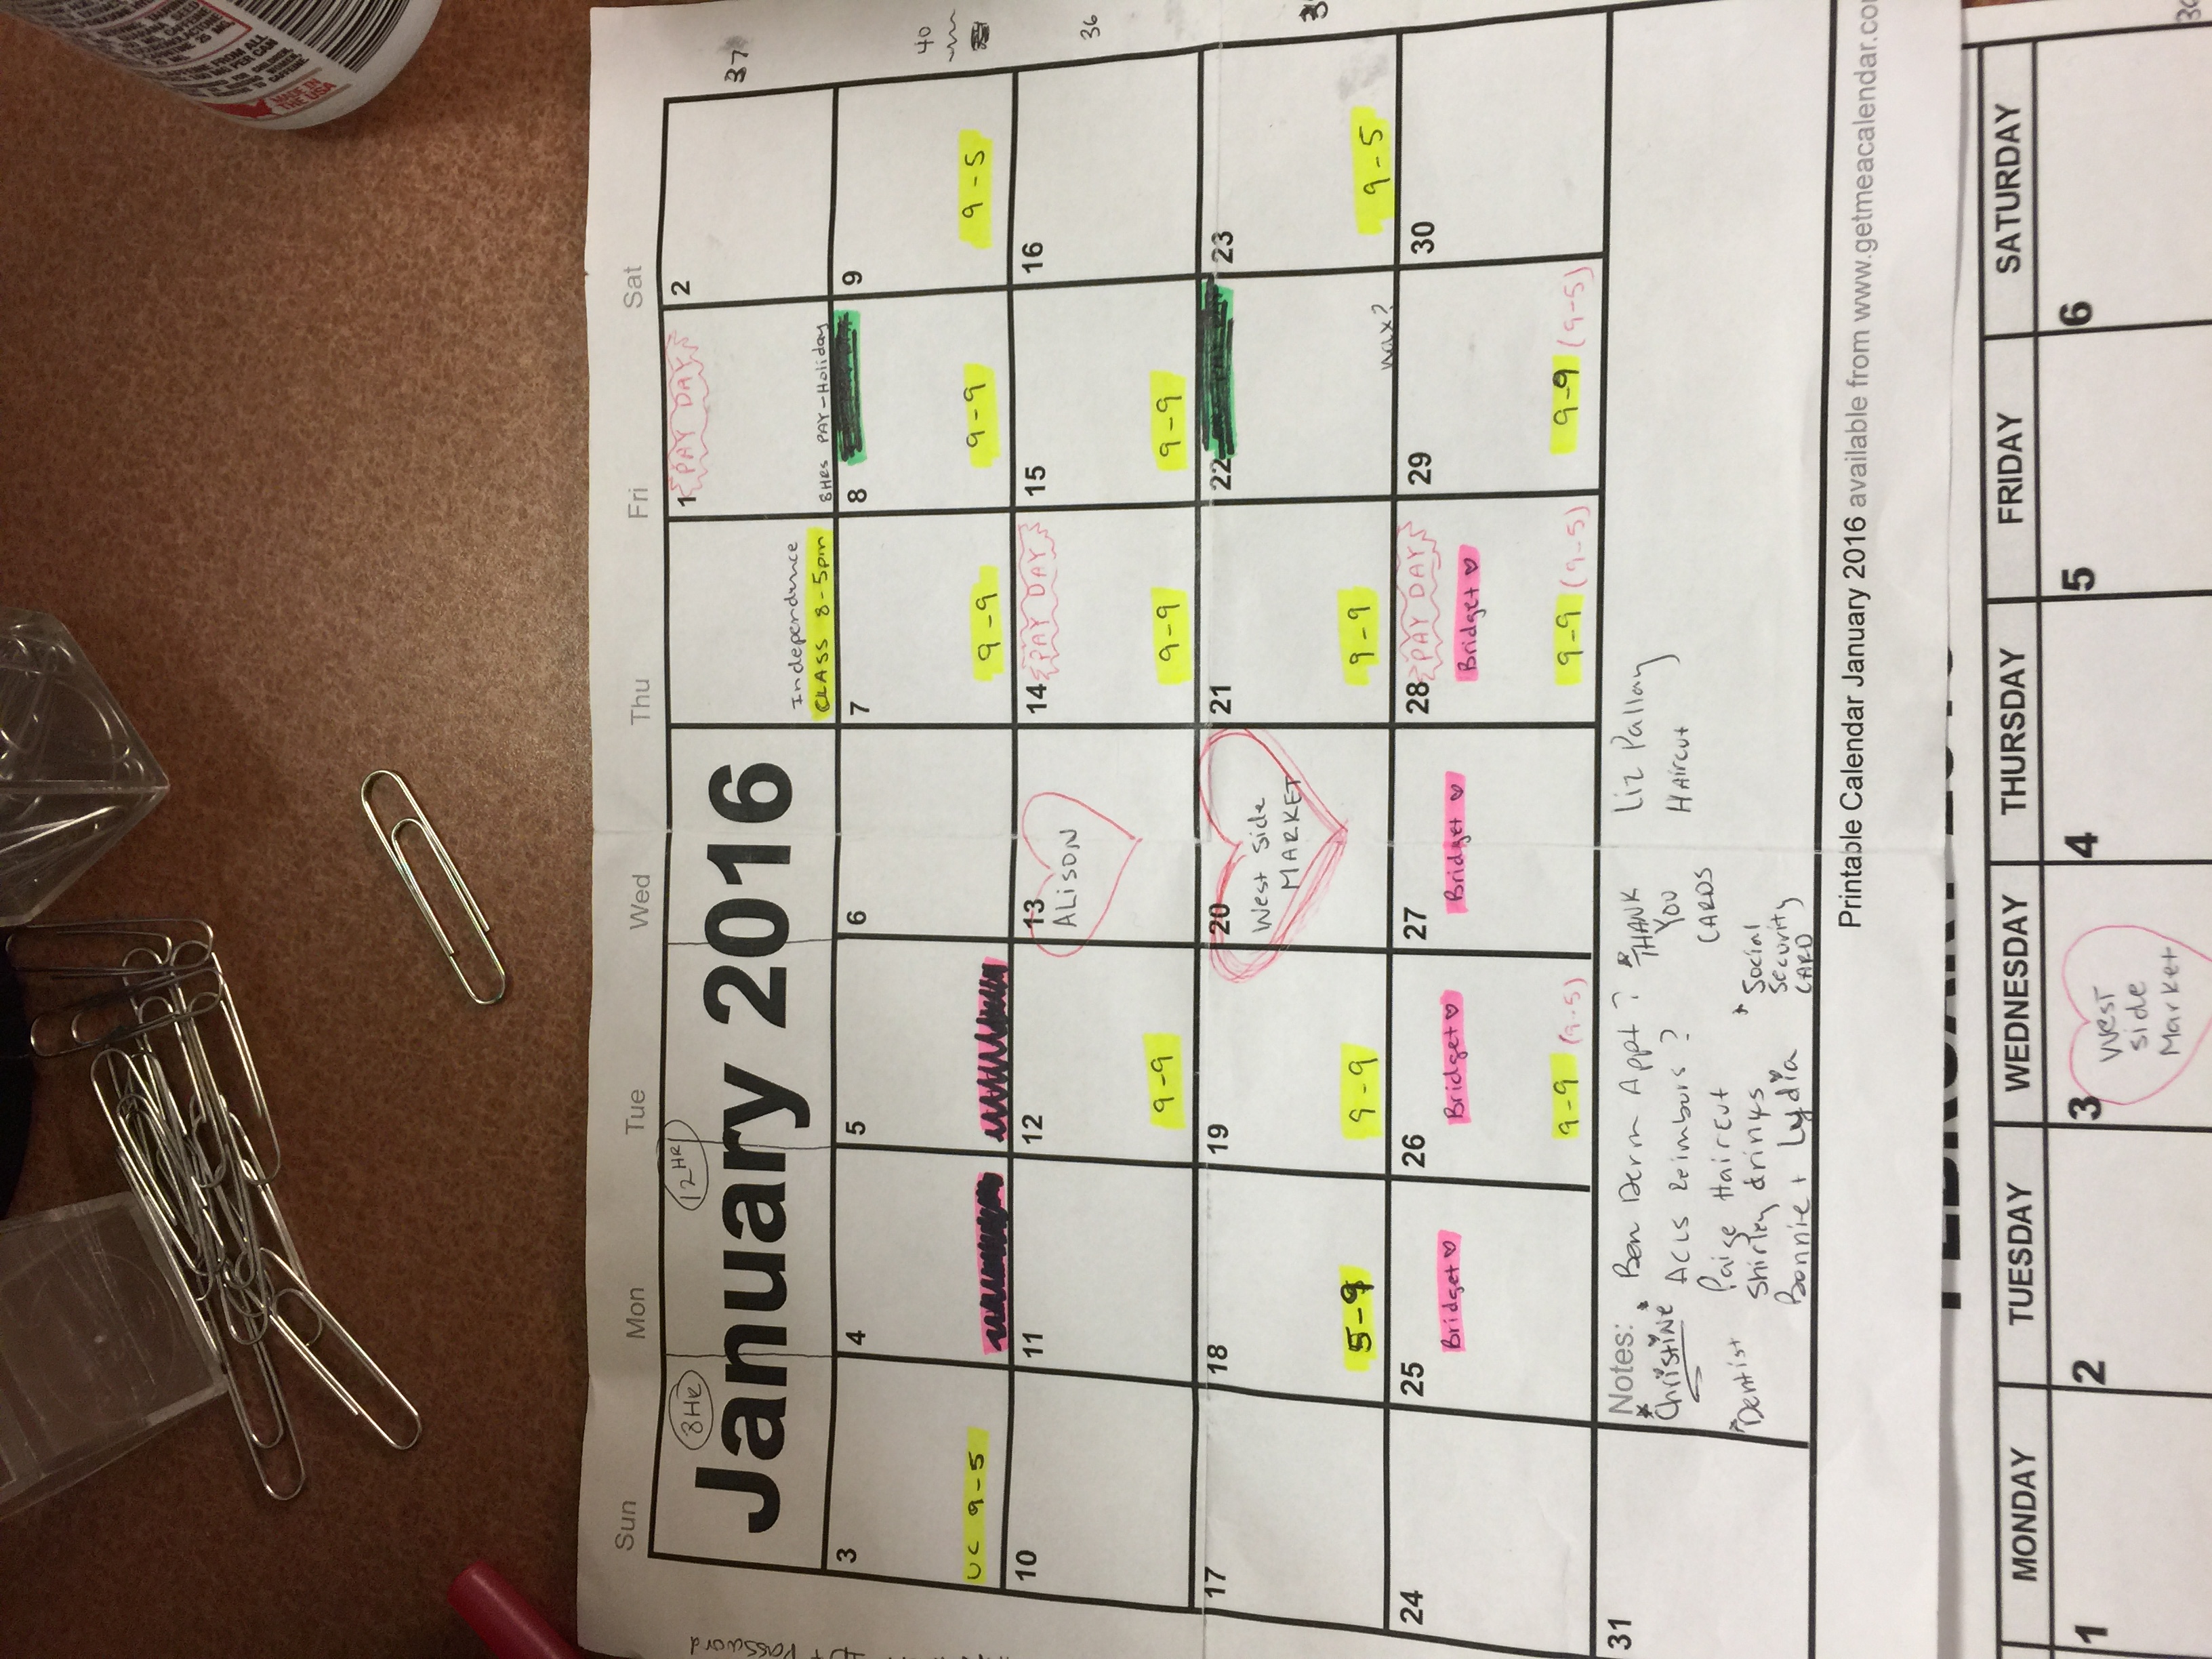 Sun Mon Tue Wed Thu Fri Sat
8HR 12HR
January 2016
Independence
CLASS 8-5pm
1 PAY DAY
8HRS PAY-Holiday
2
37
Password
3
UC 9-5
4
5
6
7
9-9
8
9-9
9
9-5
40
10
11
12
9-9
13
ALISON
14 PAY DAY
9-9
15
9-9
16
36
17
18
5-9
19
9-9
20
West Side
MARKET
21
9-9
22
wax?
23
9-5
24
25
Bridget ♡
26
Bridget ♡
9-9 (9-5)
27
Bridget ♡
28 PAY DAY
Bridget ♡
9-9 (9-5)
29
9-9 (9-5)
30
31
Notes:
Christine
Dentist
Ben Derm Appt?
ACLS Reimburs?
Paige Haircut
Shirley drinks
Bonnie + Lydia
THANK
YOU
CARDS
Social
Security
CARD
Liz Pallay
Haircut
Printable Calendar January 2016 available from www.getmeacalendar.co
FEBRUARY 2016
MONDAY TUESDAY WEDNESDAY THURSDAY FRIDAY SATURDAY
1
2
3
West
side
Market
4
5
6
MADE IN
THE USA